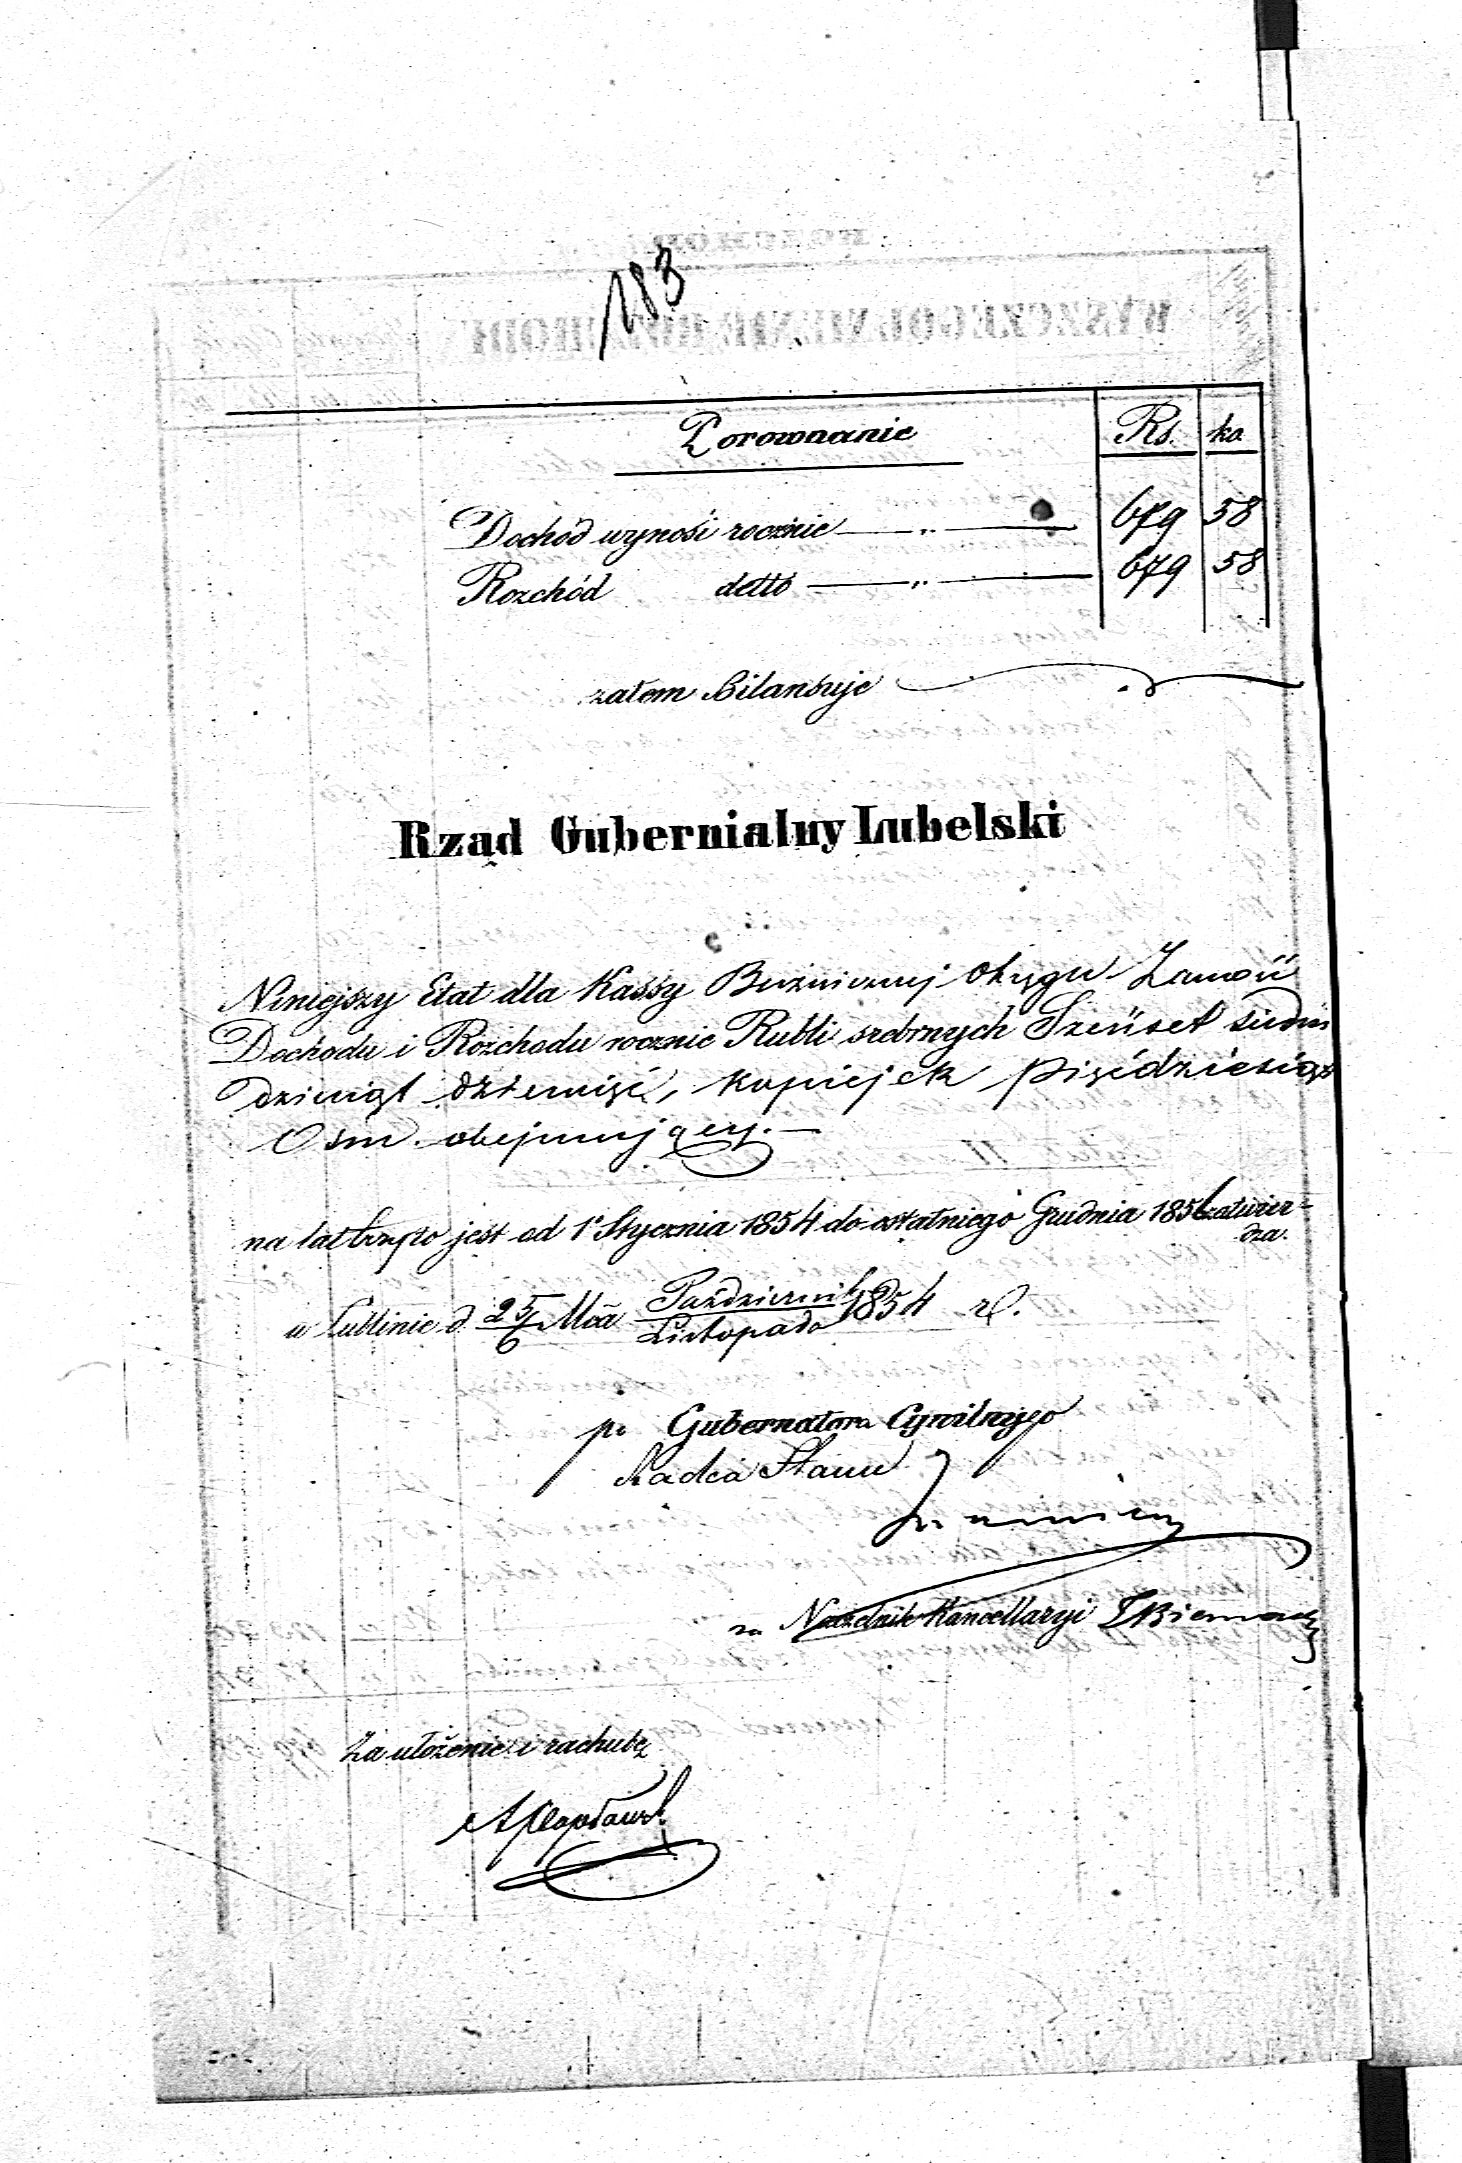 183
Porownanie Rs. ko
Dochód wynosi rocznie 679 58
Rozchód detto 679 58
zatem Bilansuje
Rząd Gubernialny Lubelski
Niniejszy Etat dla Kassy Bużnicznej Okręgu Zamość
Dochodu i Rozchodu rocznie Rubli srebrnych Sześset siedm
dziesiąt dziewięć, kopiejek pięćdziesiąt
Osm obejmujący.
na lat trzy to jest od 1 Stycznia 1854 do ostatniego Grudnia 1856 zatwier-
dza.
w Lublinie d. 25/6 Mca Październik/Listopada 1854 r.
po Gubernatora Cywilnego
Radca Stanu
za Naczelnik Kancellaryi
Za ułożenie i rachubę